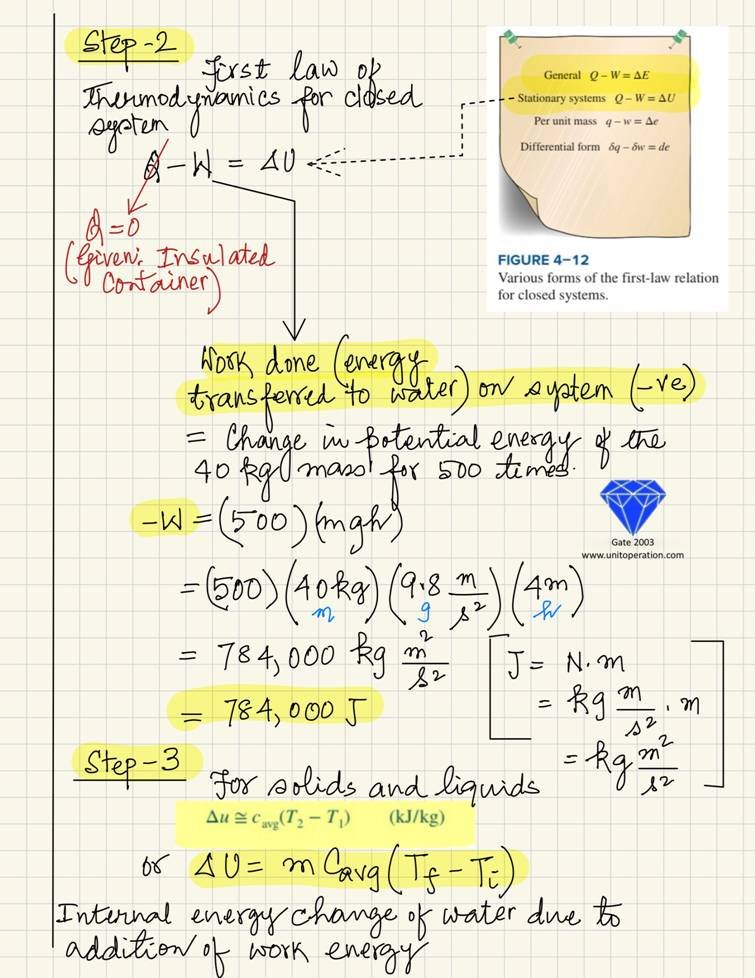 Step-2
First law of
Thermodynamics for closed
system
Q - W = ΔU
Q = 0
(Given: Insulated
Container)
General Q − W = ΔE
Stationary systems Q − W = ΔU
Per unit mass q − w = Δe
Differential form δq − δw = de
FIGURE 4–12
Various forms of the first-law relation
for closed systems.
Work done (energy
transferred to water) on system (-ve)
= Change in potential energy of the
40 kg mass for 500 times.
-W = (500) (mgh)
Gate 2003
www.unitoperation.com
= (500) (40 kg) (9.8 m/s²) (4m)
m g h
= 784,000 kg m²/s²
= 784,000 J
[J = N·m
= kg m/s² · m
= kg m²/s²]
Step-3
For solids and liquids
Δu ≅ c_avg(T₂ − T₁) (kJ/kg)
or ΔU = m Cavg (T_f - T_i)
Internal energy change of water due to
addition of work energy